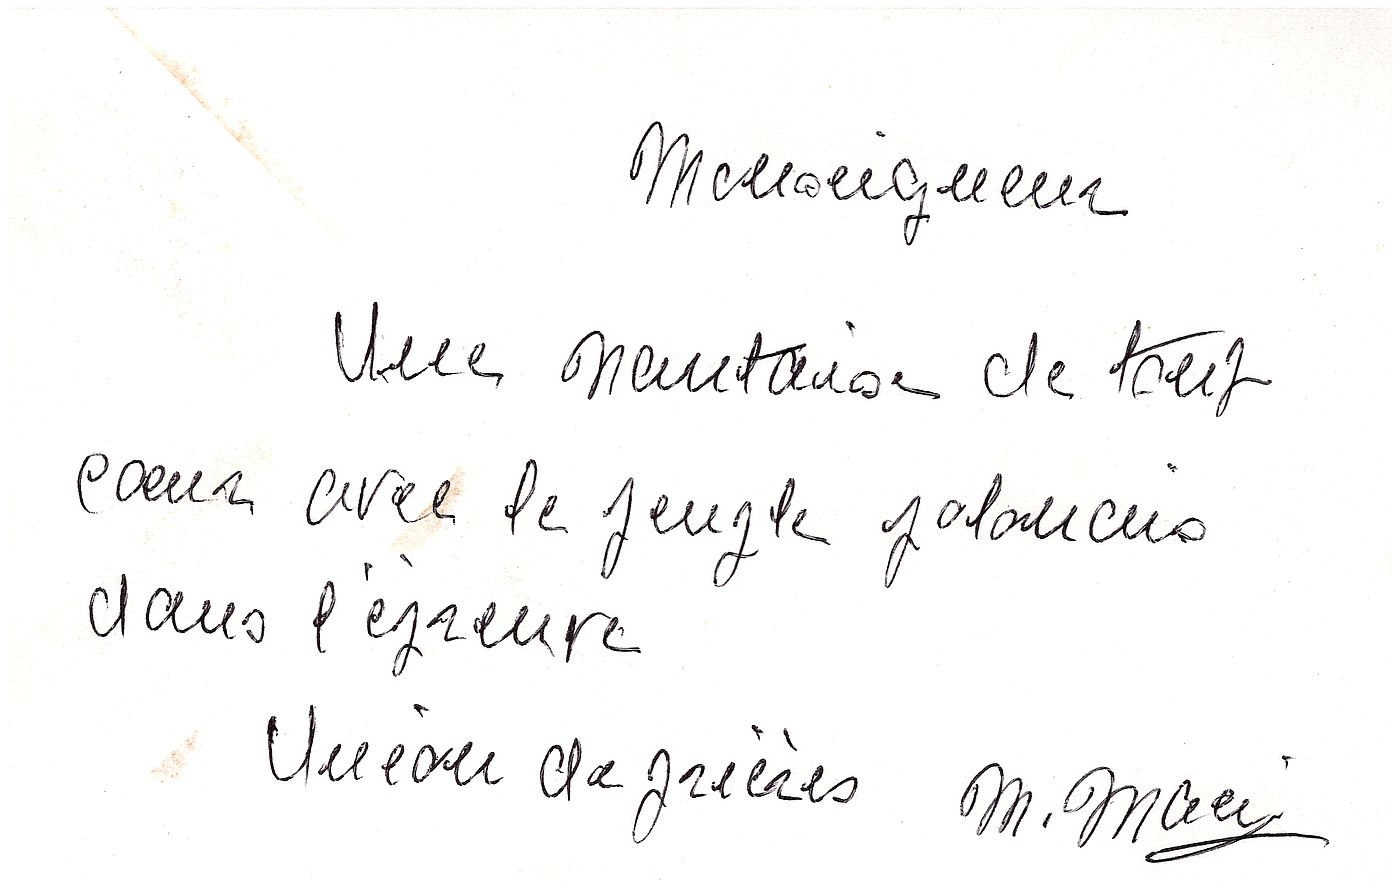 Monseigneur
Une nantaise de tout
coeur avec le peuple polonais
dans l'épreuve
Union de prières M.